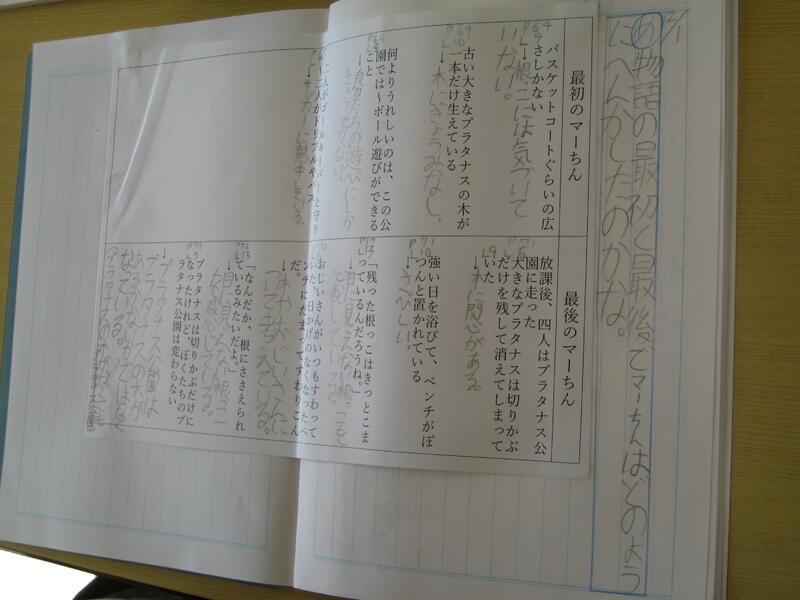 7/1
め 物語の最初と最後でマーちんはどのよう
にへんかしたのかな。
最初のマーちん
P64
L7
バスケットコートぐらいの広
さしかない
→根っこには気づいて
いない。
P64
L10
古い大きなプラタナスの木が
一本だけ生えている
→木にきょうみなし。
何よりうれしいのは、この公
園では〜ボール遊びができる
こと
→自分たちの遊びにしか
きょうみがない。
二人がゴールキーパーと守り
〜二人がドリブルやパス
→サッカーに熱中している。
最後のマーちん
放課後、四人はプラタナス公
園に走った
P71
大きなプラタナスは切りかぶ
だけを残して消えてしまって
いた
→木に関心がある。
P71
L10
強い日を浴びて、ベンチがぽ
つんと置かれている
→さびしい。
「残った根っこはきっとこま
っているんだろうね。」
→目に見えない根っこを
心配している。
おじいさんがいつもすわって
いた、日かげのなくなったベ
ンチにだまってすわりこん
だ。
→木やおじいさんに
ついて考えている。
「なんだか、根にささえられ
ているみたいだよ。」
→目に見えない根っこ
を感じている。
プラタナスは切りかぶだけに
なったけれど、ぼくたちのプ
ラタナス公園は変わらない
→プラタナス公園は
プラタナスの木が
あるなしかではなく
なっている。